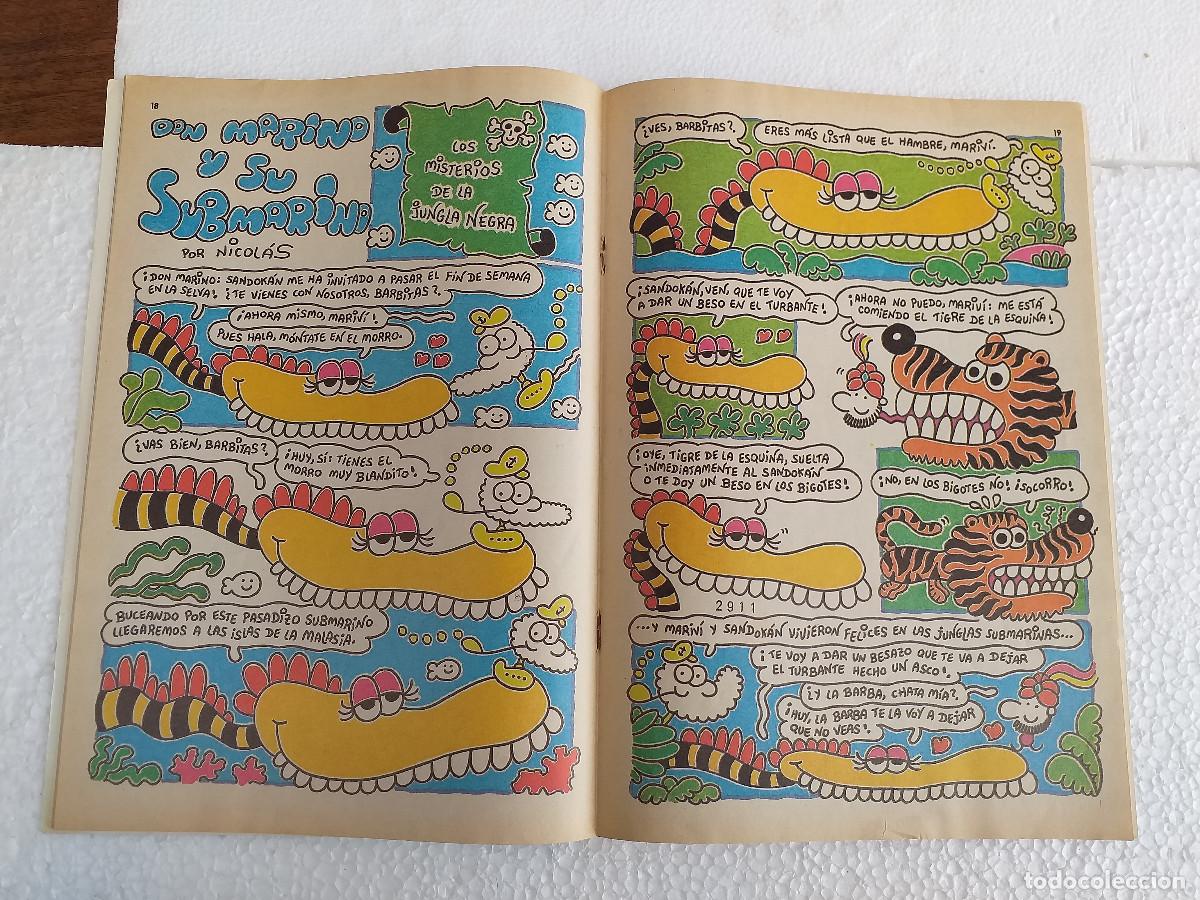 18
DON MARINO
Y SU
SUBMARINA
POR NICOLÁS
LOS
MISTERIOS
DE LA
JUNGLA NEGRA
¡DON MARINO: SANDOKÁN ME HA INVITADO A PASAR EL FIN DE SEMANA
EN LA SELVA! ¿TE VIENES CON NOSOTROS, BARBITAS?.
¡AHORA MISMO, MARIVÍ!
PUES HALA, MÓNTATE EN EL MORRO.
¿VAS BIEN, BARBITAS?.
¡HUY, SÍ: TIENES EL
MORRO MUY BLANDITO!
BUCEANDO POR ESTE PASADIZO SUBMARINO
LLEGAREMOS A LAS ISLAS DE LA MALASIA.
19
¿VES, BARBITAS?.
ERES MÁS LISTA QUE EL HAMBRE, MARIVÍ.
¡SANDOKÁN, VEN, QUE TE VOY
A DAR UN BESO EN EL TURBANTE!
¡AHORA NO PUEDO, MARIVÍ: ME ESTÁ
COMIENDO EL TIGRE DE LA ESQUINA!
¡OYE, TIGRE DE LA ESQUINA, SUELTA
INMEDIATAMENTE AL SANDOKÁN
O TE DOY UN BESO EN LOS BIGOTES!
¡NO, EN LOS BIGOTES NO! ¡SOCORRO!
2911
...Y MARIVÍ Y SANDOKÁN VIVIERON FELICES EN LAS JUNGLAS SUBMARINAS...
¡TE VOY A DAR UN BESAZO QUE TE VA A DEJAR
EL TURBANTE HECHO UN ASCO!
¿Y LA BARBA, CHATA MÍA?.
¡HUY, LA BARBA TE LA VOY A DEJAR
QUE NO VEAS!
todocoleccion